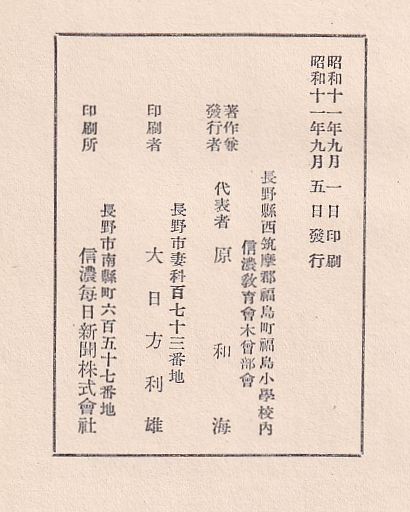 昭和十一年九月一日印刷
昭和十一年九月五日發行
長野縣西筑摩郡福島町福島小學校內
信濃敎育會木曾部會
著作兼
發行者
代表者 原和海
長野市妻科百七十三番地
印刷者 大日方利雄
長野市南縣町六百五十七番地
印刷所 信濃每日新聞株式會社